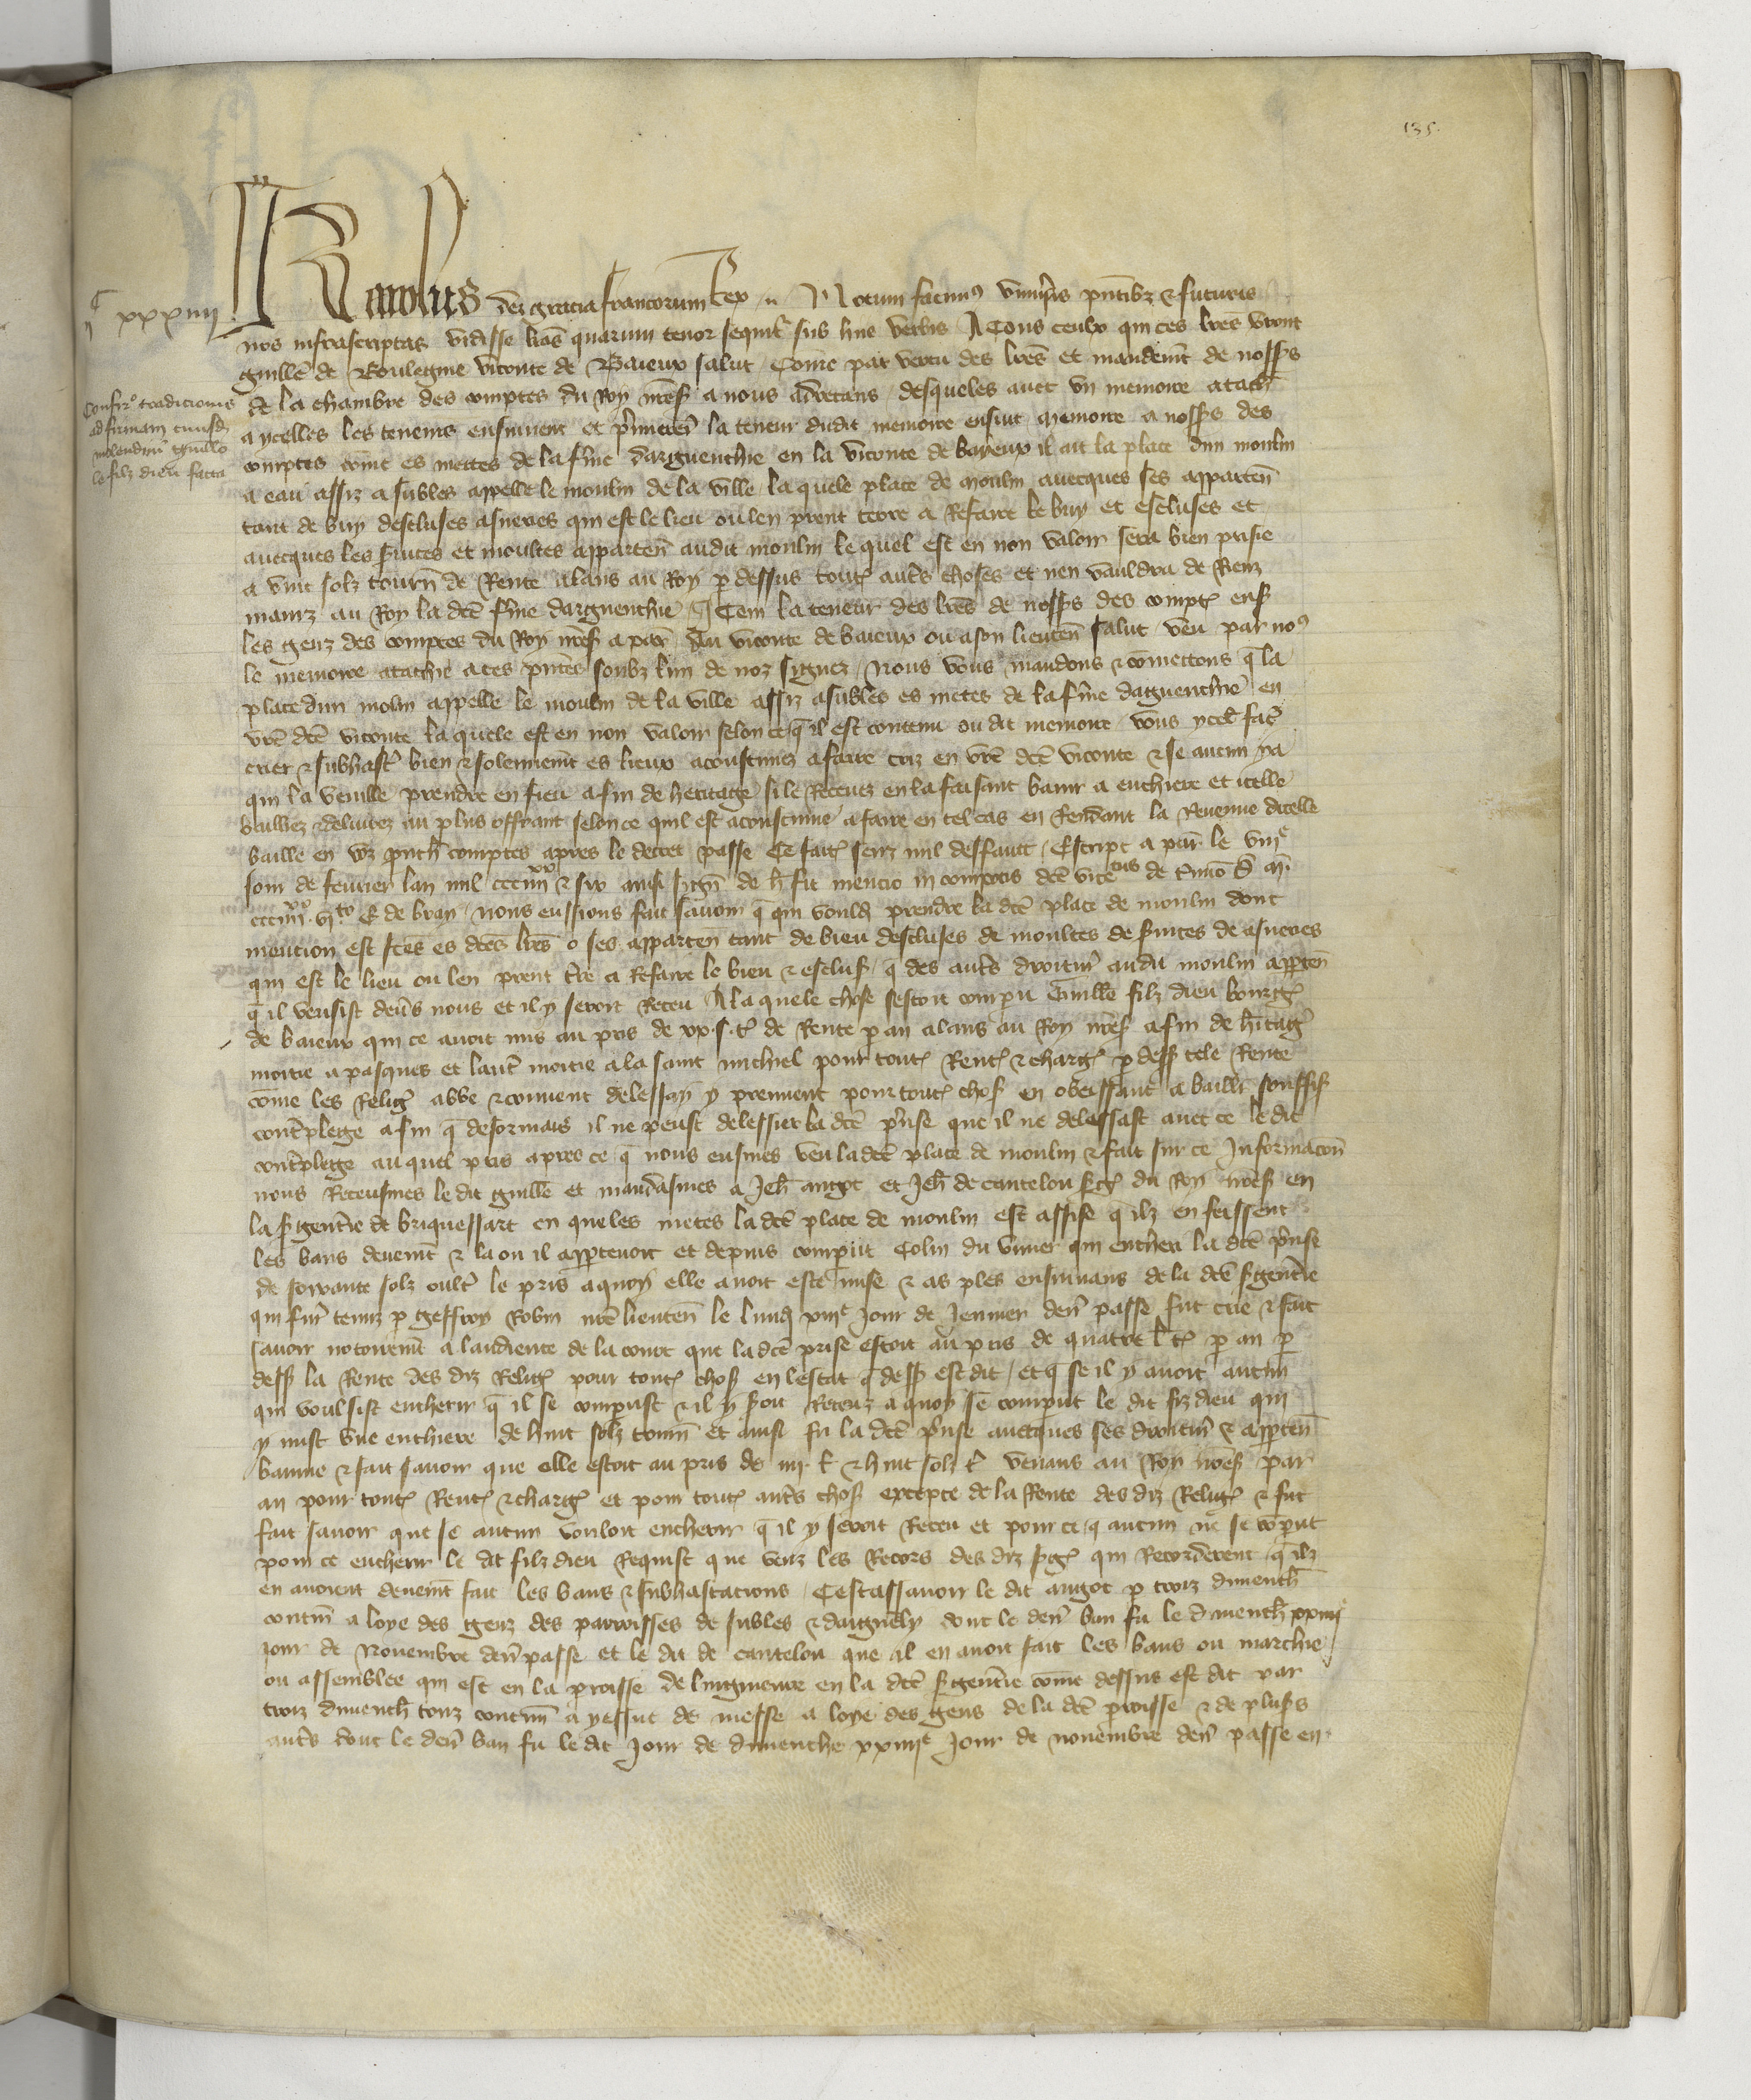 135.
Karolus dei gracia francorum Rex .. Notum facimus universis pntibz & futuris
xxxiiii
nos infrascriptas vidisse lras quarum tenor sequitr sub hiis verbis A Tous ceulx qui ces lres verront
guille de Bouleigne viconte de Baieux salut Come par vertu des lres et mandemt de nosss
de la chambre des comptes du Roy nress a nous adrecans desqueles avec un memoire atach
a ycelles les teneurs ensuivent et primeremt la teneur dudit memoire ensuit Memoire a nosss des
Confirmo tradicionis
ad firmam cuiusd
molendini guillo
le filz dieu facta
comptes come es mettes de la fme darguenchie en la viconte de bayeux il ait la place dun moulin
a eau assiz a subles appelle le moulin de la ville la quele place de moulin avecques ses apparten
tant de buy descluses asneries qui est le lieu ou len prent terre a Refaire le buy et escluses et
avecques les suites et moultes apparten audit moulin le quel est en non valoir sera bien prisie
a vint solz tourn de Rente alans au Roy p dessus toutes autrs choses et nen vauldra de Rienz
mainz au Roy la dte fme darguenchie Item la teneur des lres de nosss des comptes ens
les genz des comptes du Roy nress a par Au viconte de baieux ou a son lieuten salut veu par nos
le memoire atachie a ces pntes soubz lun de noz signez Nous vous mandons & cometons q la
place dun molin appelle le moulin de la ville assiz a subles es metes de la fme darguenchie en
vre dte viconte la quele est en non valoir selon ce q il est contenu ou dit memoire vous ycel fac
crier & subhast bien & solennemt es lieux acoustumez a faire criz en vre dte viconte & se aucun y a
qui la veuille prendre en fieu a fin de heritage si le Recevez en la faisant banir a enchiere et icelle
bailliez & delivrez au plus offrant selon ce quil est acoustume a faire en tel cas en Rendant la Revenue dicelle
baille en voz prochains comptes apres le decret passe Ce faites senz nul deffaut Escript a par le viiie
jour de fevrier lan mil ccc iiiixx & six ainsi sign de h fit mencio in compotis dce vicecus de
ccc iiiixx vito E de bray Nous eussions fait savoir q qui vould prendre la dte place de moulin dont
mencion est fces es dces lres o ses apparten tant de bieu descluses de moultes de suites de asneries
qui est le lieu ou len prent tre a Refaire le bieu & esclus q des autrs droitur audit moulin apparten
q il venist devs nous et il y seroit Receu A la quele chose sestoit compu Guille filz dieu bourgs
de baieux qui ce avoit mis au pris de xx s t de Rente p an alans au Roy nress a fin de hitage
moitie a pasques et laut moitie a la saint michiel pour toutes Rentes & charges p dess tele Rente
come les Religs abbe & convent de lessay y prennent pour toutes chos en obeissant a baillr souffis
contplege afin q desormais il ne peust delessier la dte prise que il ne delessast avec ce le dit
contplege auquel pris apres ce q nous eusmes veu la dte place de moulin & fait sur ce Informacon
nous Receusmes le dit guille et mandasmes a Jeh angot et Jeh de cantelou sgs du Roy nress en
la sgentrie de briquessart en queles metes la dte place de moulin est assise q ilz en feissent
les bans deuemt & la ou il appartenoit et depuis comput Colin du vivier qui encheri la dte prise
de soixante solz oultr le pris a quoy elle avoit este mise & as ples ensuivans de la dte sgentrie
qui fur tenuz p geffroy Robin nre lieuten le lundi xiiie jour de Jenvier den passe fut crie & fait
savoir notoiremt a laudience de la court que la dte prise estoit au pris de quatre l t p an p
dess la Rente des diz Religs pour toutes chos en lestat q dess est dit et q se il y avoit aucun
qui voulsist encherir q il se compust & il y soit Receuz a quoy se comput le dit filz dieu qui
y mist une enchiere de huit solz tourn et ainsi fu la dte prise avecques ses droitur & apparten
bannie & fait savoir que elle estoit au pris de iiii l & huit solz t venans au Roy nress par
an pour toutes Rentes & charges et pour toutes autrs chos excepte de la Rente des diz Religs & fut
fait savoir que se aucun vouloit encherir q il y seroit Receu et pour ce q aucun ne se coput
pour ce encherir le dit filz dieu Requist que veuz les Recors des diz sgs qui Recorderent q ilz
en avoient deuemt fait les bans & subhastacions Cestassavoir le dit angot p troiz dimench
contin a loye des genz des parroisses de subles & darguchy dont le den ban fu le dimench xxiiiie
jour de Novembre den passe et le dit de cantelou que il en avoit fait les bans ou marchie
ou assemblee qui est en la proisse de lingieuvre en la dte sgentrie come dessus est dit par
troiz dimench touz contin a yessue de messe a loye des gens de la dte proisse & de pluss
autrs dont le den ban fu le dit Jour de dimenche xxiiiie Jour de novembre den passe en